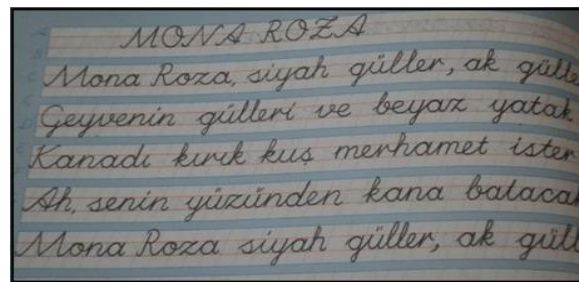 MONA ROZA
Mona Roza, siyah güller, ak gülle
Geyvenin gülleri ve beyaz yatak
Kanadı kırık kuş merhamet ister
Ah, senin yüzünden kana batacak
Mona Roza siyah güller, ak gülle